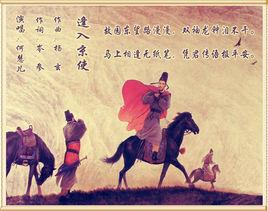 逢入京使
作曲 杨
作词 岑参
演唱 何慧
故园东望路漫漫,双袖龙钟泪不干。
马上相逢无纸笔,凭君传语报平安。